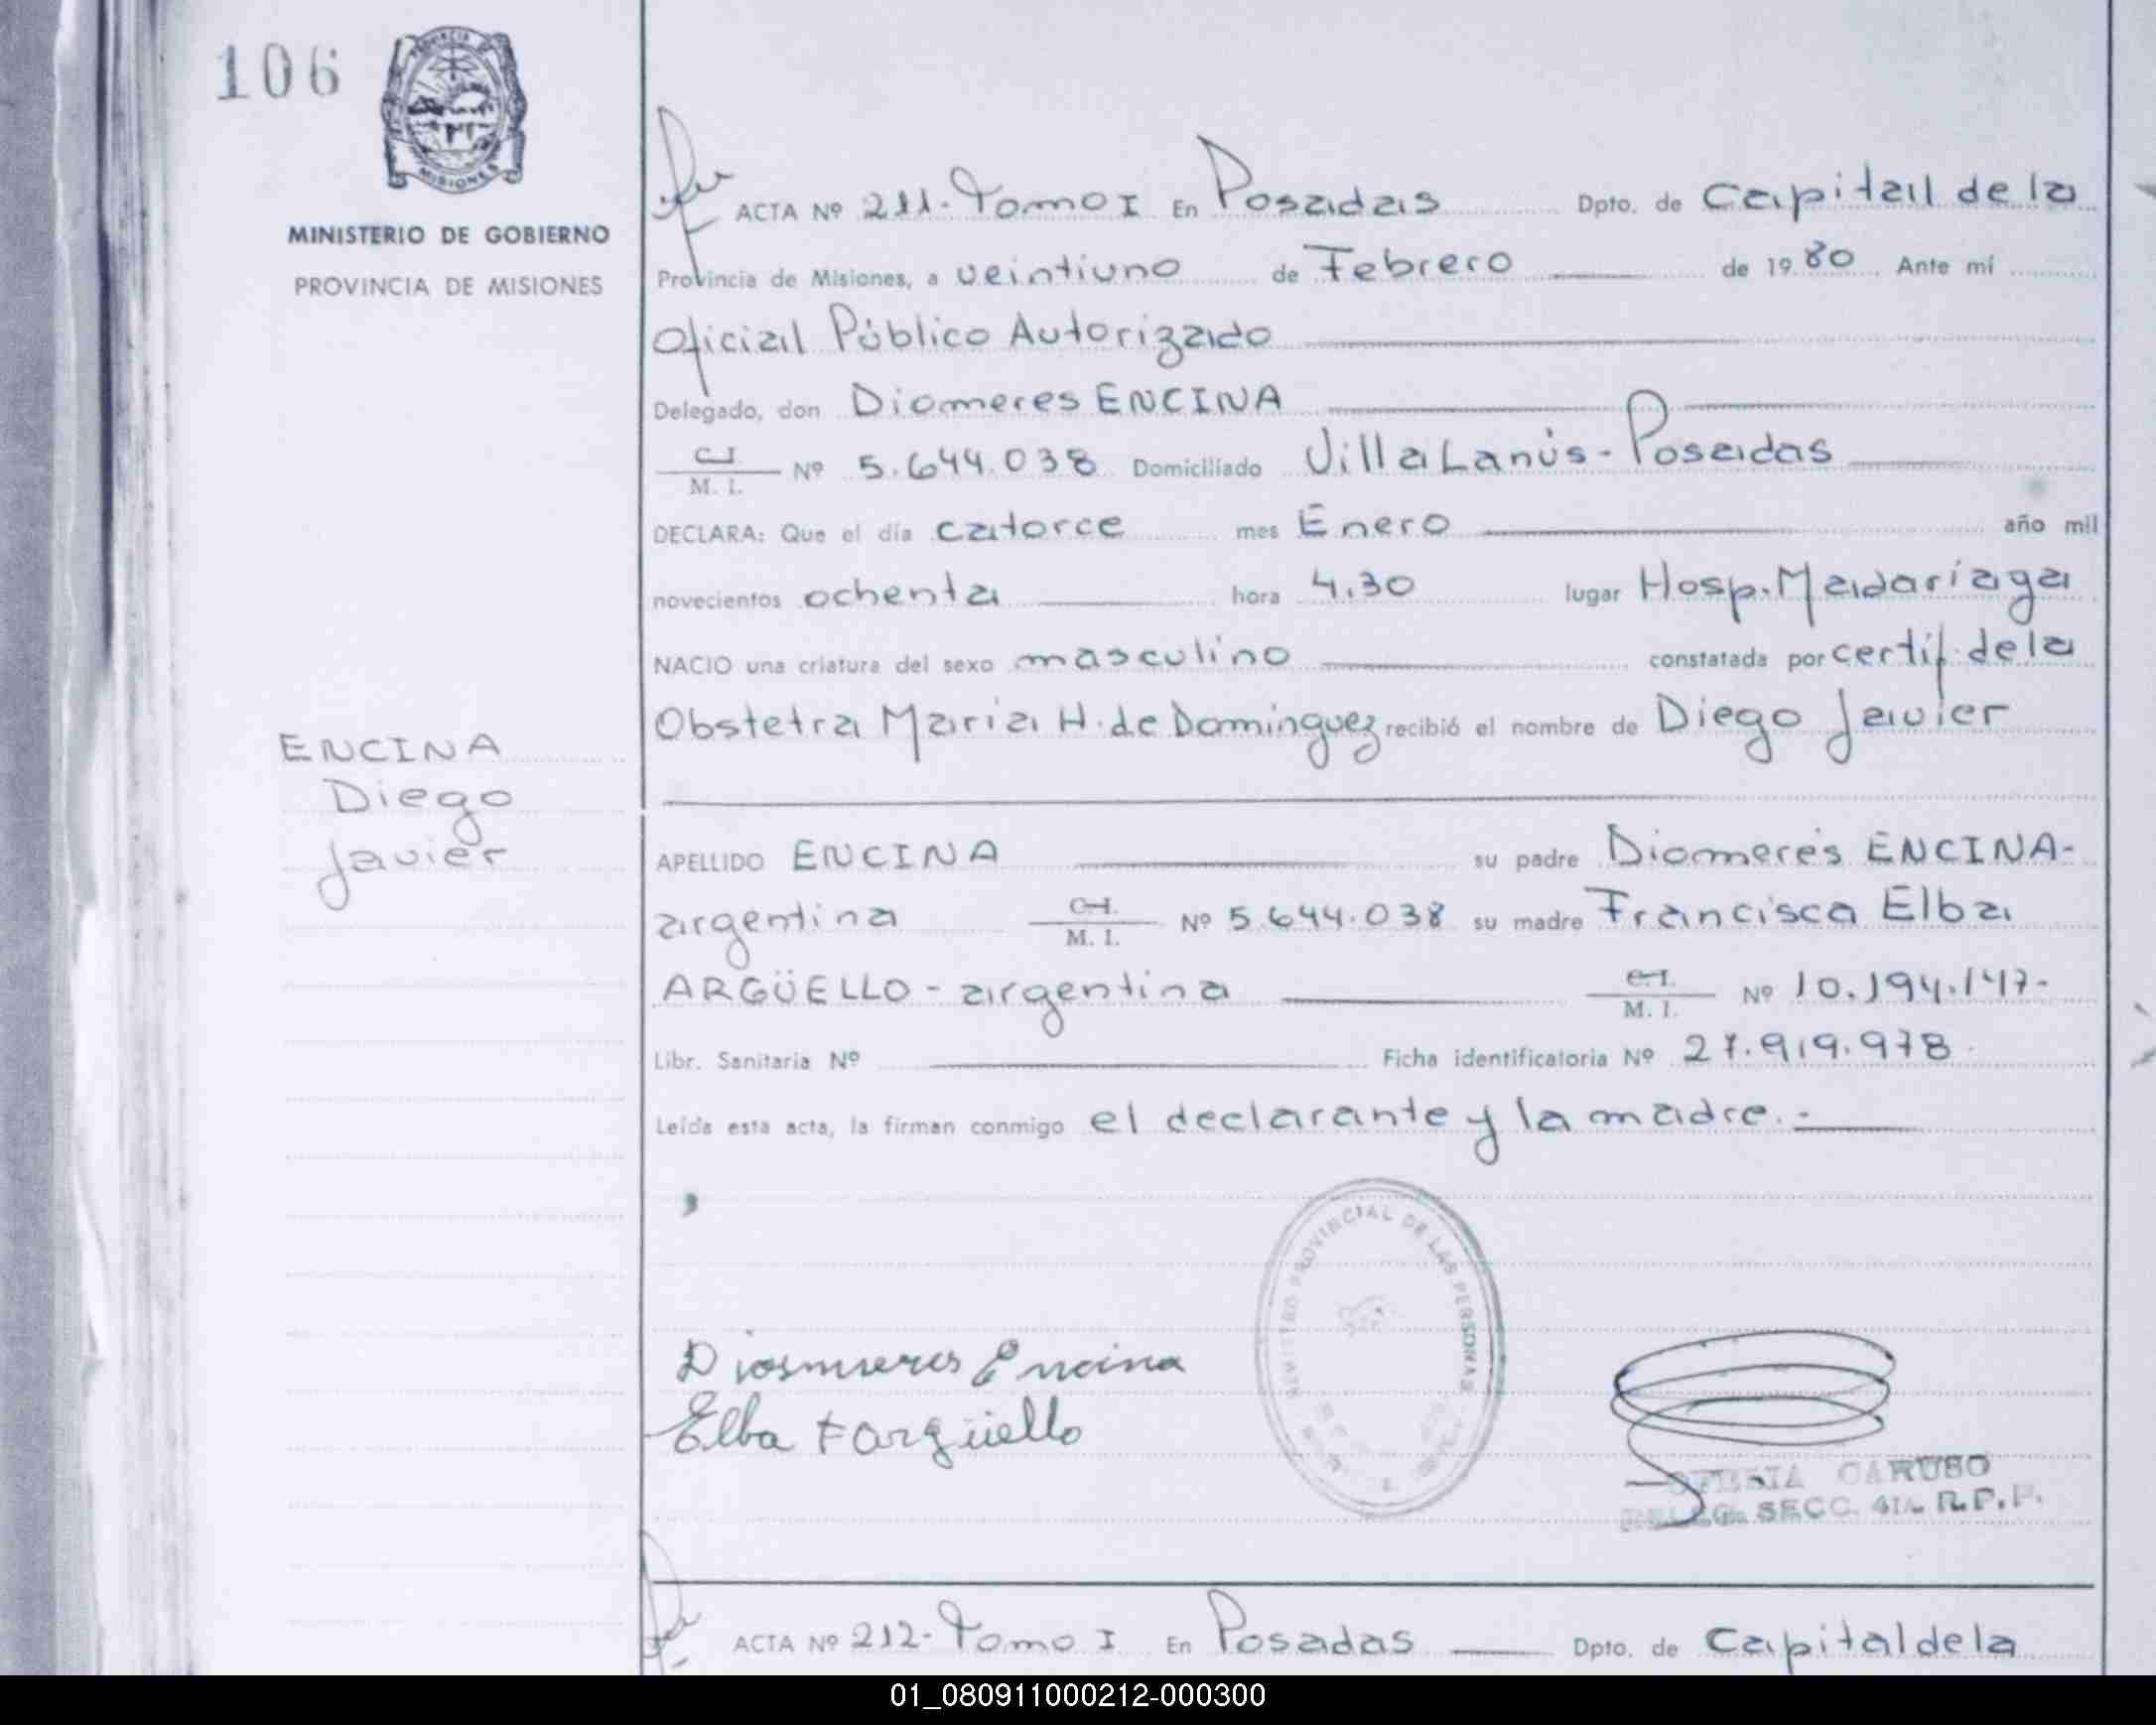 106
PROVINCIA DE
MISIONES
MINISTERIO DE GOBIERNO
PROVINCIA DE MISIONES
ENCINA
Diego
Javier
ACTA Nº 211- Tomo I En Posadas Dpto. de Capital de la
Provincia de Misiones, a veintiuno de Febrero de 1980 Ante mí
Oficial Público Autorizado
Delegado, don Diomeres ENCINA
CI M. I. Nº 5.644.038 Domiciliado Villa Lanús - Posadas
DECLARA: Que el día catorce mes Enero año mil
novecientos ochenta hora 4,30 lugar Hosp. Madariaga
NACIO una criatura del sexo masculino constatada por certif. de la
Obstetra María H. de Domínguez recibió el nombre de Diego Javier
APELLIDO ENCINA su padre Diomeres ENCINA-
argentina C.I. M. I. Nº 5.644.038 su madre Francisca Elba
ARGÜELLO - argentina C.I. M. I. Nº 10.194.147-
Libr. Sanitaria Nº Ficha identificatoria Nº 27.919.978
Leída esta acta, la firman conmigo el declarante y la madre.-
PROVINCIAL DE LAS PERSONAS
Diosmeres Encina
Elba F Argüello
CARUSO
SECC. 4ta R.P.P.
ACTA Nº 212- Tomo I En Posadas Dpto. de Capital de la
01_080911000212-000300